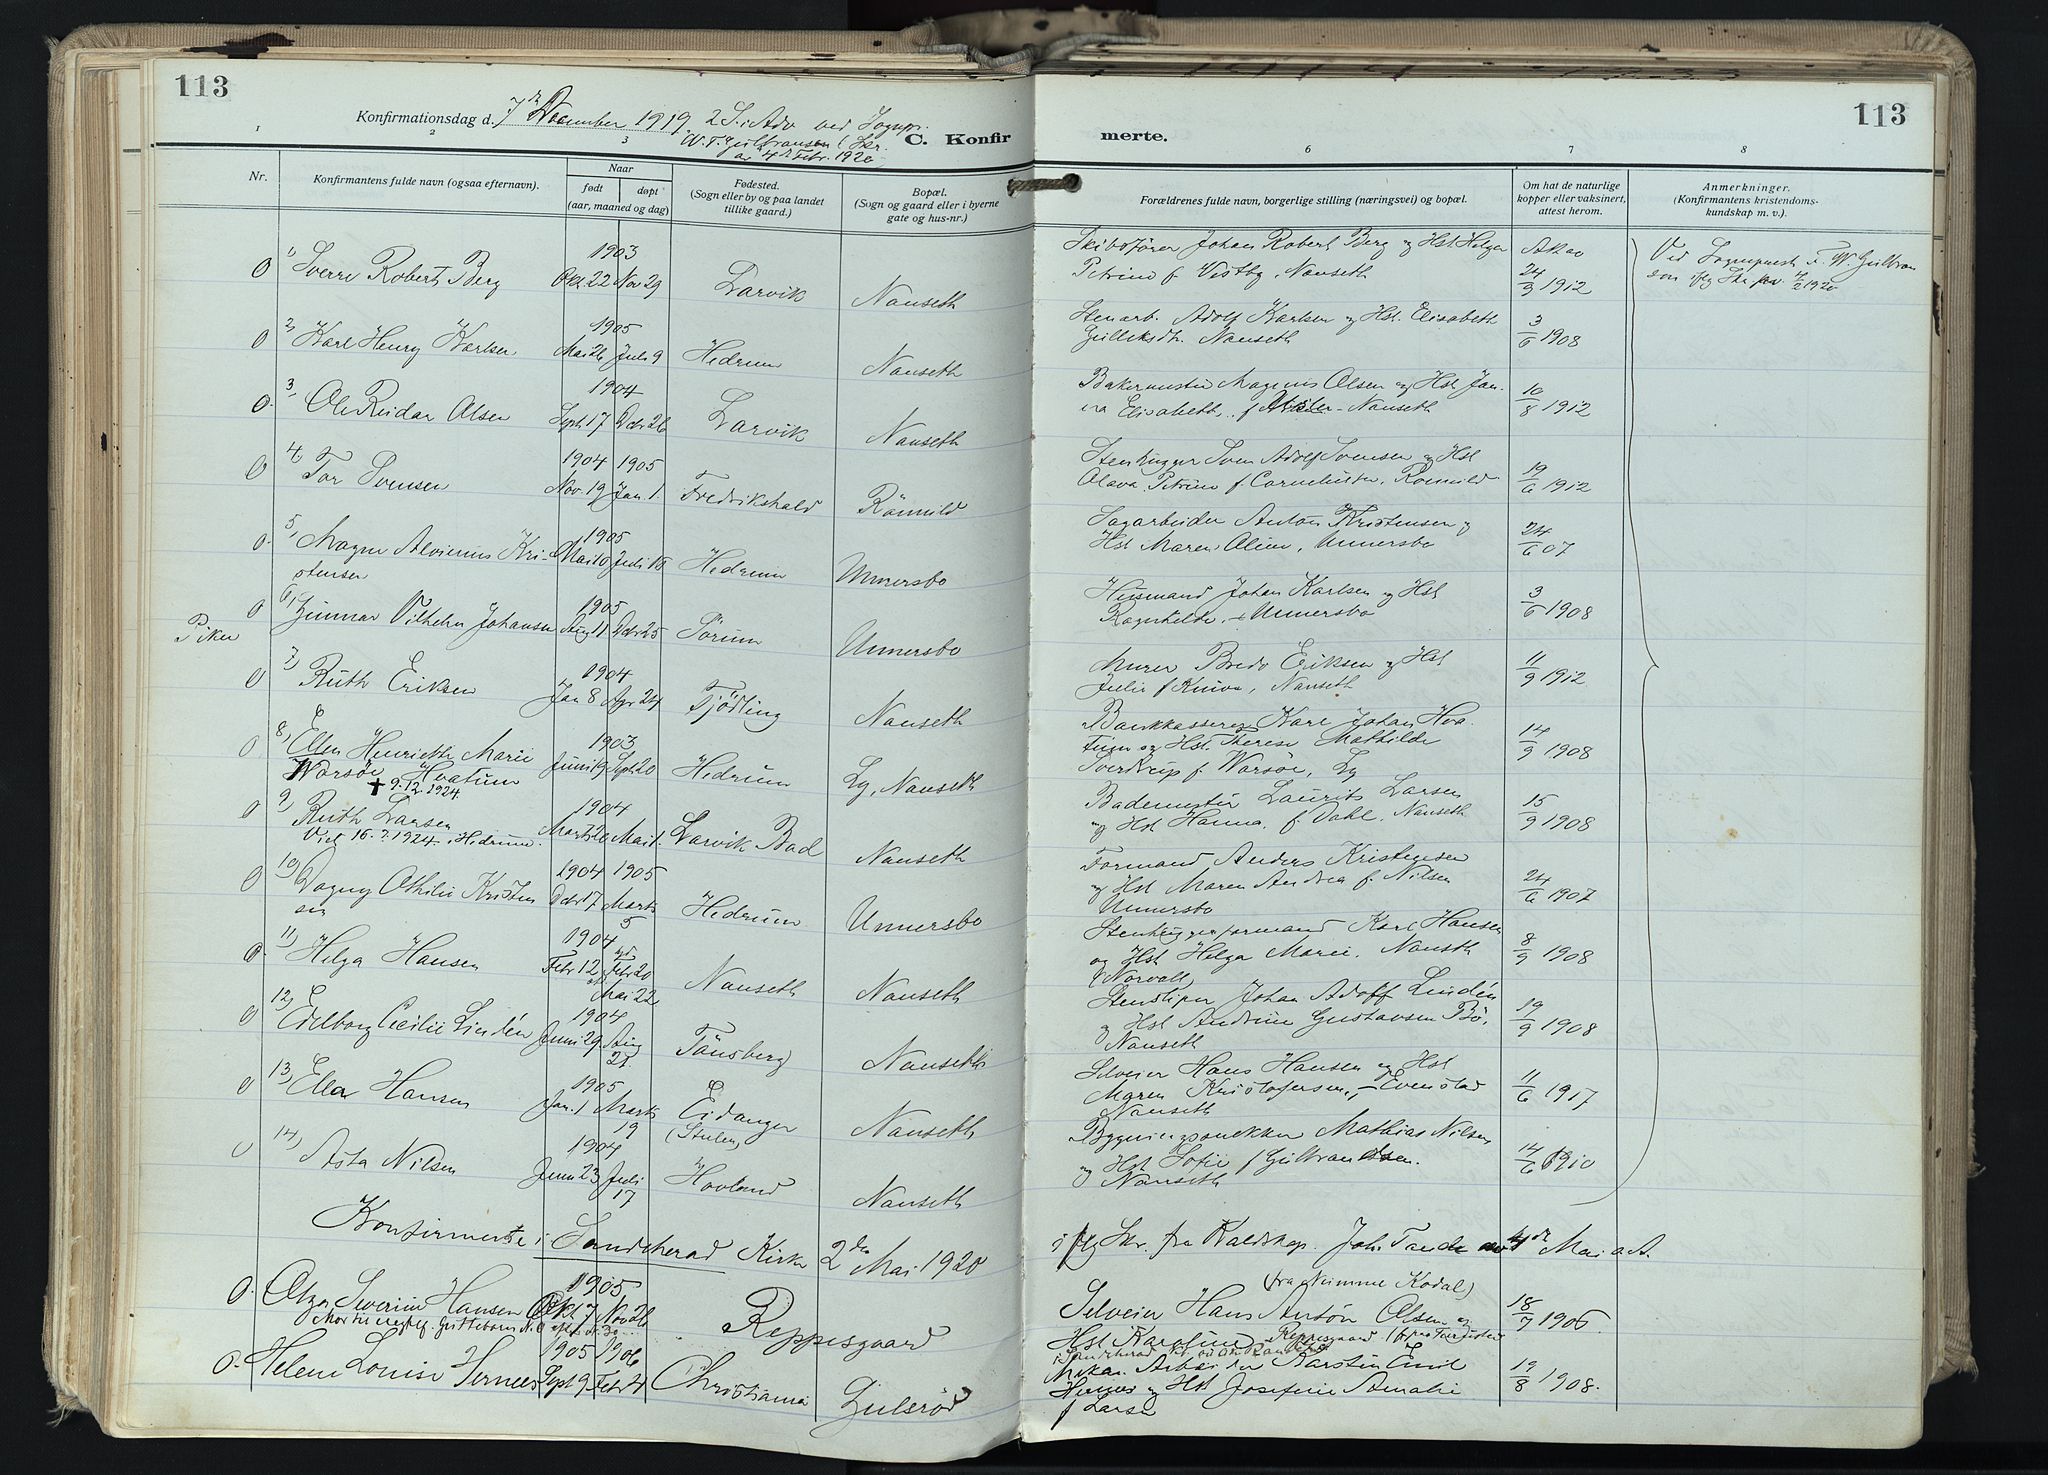 113
113
Konfirmationsdag d. 7de December 1919 2 S. i Adv ved Sognpr.
W. F. Gulbransen (Skr.
av 4de Febr. 1920
C. Konfirmerte.
1 2 3 6 7 8
Nr.
Konfirmantens fulde navn (ogsaa efternavn).
Naar
født
døpt
(aar, maaned og dag)
Fødested.
(Sogn eller by og paa landet
tillike gaard.)
Bopæl.
(Sogn og gaard eller i byerne
gate og hus-nr.)
Forældrenes fulde navn, borgerlige stilling (næringsvei) og bopæl.
Om hat de naturlige
kopper eller vaksinert,
attest herom.
Anmerkninger.
(Konfirmantens kristendoms-
kundskap m. v.).
1903
0 1) Sverre Robert Berg Okt 22 Nov 29 Larvik Nanseth
Skibsfører Johan Robert Berg og Hst Helga
Petrine f. Vestby, Nanseth 24/3 1912
Ved Sogneprest F. W. Gulbran
sen iflg Skr. 4/2 1920
1905
0 2) Karl Henry Karlsen Mai 26 Juli 9 Hedrum Nanseth
Stenarb. Adolf Karlsen og Hst. Elisabeth
Gulleksdtr. Nanseth 3/6 1908
1904
0. 3) Ole Reidar Olsen Sept 17 Dcbr 26 Larvik Nanseth
Bakermester Magnus Olsen og Hst Jan-
na Elisabeth, f. Nanseth 10/8 1912
1904 1905
0 4) Tor Svensen Nov. 19 Jan. 1. Fredrikshald Römmild
Stenhugger Sven Adolf Svensen og Hst
Olava Petrine f Corneliusen, Roemild 19/6 1912
1905
0. 5) Magne Alvinus Kri- Mai 10 Juli 16 Hedrum Unnersbo
stensen
Sagarbeider Anton Kristensen og
Hst Maren Oline, Unnersbo 24/6 07
1905
0 6) Gunnar Vilhelm Johansen Aug 11 Dcbr 25 Sörum Unnersbo
Husmand Johan Karlsen og Hst
Ragnhilde, Unnersbo 3/6 1908
Piker
1904
0 7) Ruth Eriksen Jan 8 Apr 24 Tjölling Nanseth
Murer Bredo Eriksen og Hst
Julie f Kniva, Nanseth 11/9 1912
1903
0 8) Ellen Henriette Marie Juni 19 Sept 20 Hedrum Lg, Nanseth
Warsöe Hvatum
† 9.12.1924.
Bankkasserer Karl Johan Hva-
tum og Hst. Therese Mathilde
Sverdrup f. Warsöe, Lg 14/9 1908
1904
0 9) Ruth Larsen Marts 20 Mai 1. Larvik Bad Nanseth
Viet 16.?.1924. Hedrum.
Bademester Laurits Larsen
og Hst Hanna, f. Dahl, Nanseth 15/9 1908
1904 1905
0 10) Dagny Othilie Kristen Dcbr 17 Marts 5 Hedrum Unnersbo
sen
Formand Anders Kristensen
og Hst Maren Andrea f. Nilsen
Unnersbo 24/6 1907
1904
0. 11) Helga Hansen Febr 12 Febr 20 Nanseth Nanseth
Mai 22
Stenhuggerformand Karl Hansen
og Hst Helga Marie, Nanseth
(Norvall) 8/9 1908
1904
0 12) Edelborg Cecilie Lindén Juni 29 Aug 21. Tönsberg Nanseth
Stensliper Johan Adolf Lindén
og Hst Andrine Gustavsen Bö,
Nanseth 19/9 1908
1905
0 13) Ella Hansen Jan. 1 Marts 19 Eidanger Nanseth
Selveier Hans Hansen og Hst
Maren Kristofersen, Evenstad
Nanseth 11/6 1917
1904
0 14) Asta Nilsen Juni 23 Juli 17 Hovland Nanseth
Bygningssnekker Mathias Nilsen
og Hst Sofie f Gulbrandsen.
Nanseth 14/6 1910
Konfirmerte i Sandeherad Kirke 2den Mai 1920 iflg Skr. fra Kaldskap. Joh. Tande av 4de Mai a A.
1905
0. Olga Severine Hansen Okt 17 Nov 26 Reppesgaard
(fra Nimme Kodal)
Selveier Hans Anton Olsen og
Hst Karoline Reppesgaard 18/7 1906.
1905 1906
0. Helene Louise Sept 9 Febr 4 Christiania Gulsröd
Mekan. Arbeider Karsten Emil
og Hst Josefine Amalie
f Larsen 19/8 1908.